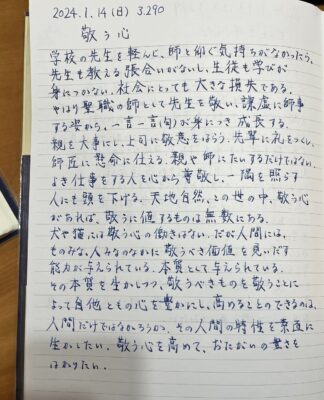 2024.1.14(日) 3.290
敬う心
学校の先生を軽んじ、師と仰ぐ気持ちがなかったら、
先生も教える張合いがないし、生徒も学びが
身につかない。社会にとっても大きな損失である。
やはり聖職の師として先生を敬い、謙虚に師事
する姿から、一言一言(句)が身につき成長する。
親を大事にし、上司に敬意をはらう。先輩に礼をつくし、
師匠に懸命に仕える。親や師にたいするだけではない。
よき仕事をする人を心から尊敬し、一隅を照らす
人にも頭を下げる。天地自然、この世の中、敬う心
があれば、敬うに値するものは無数にある。
犬や猫には敬う心の働きはない。だが人間には、
ものみな、人みなのなかに敬うべき価値を見いだす
能力が与えられている。本質として与えられている。
その本質を生かしつつ、敬うべきものを敬うことに
よって自他ともの心を豊かにし、高めることのできるのは、
人間だけではなかろうか。その人間の特性を素直に
生かしたい。敬う心を高めて、おたがいの豊さを
はかりたい。